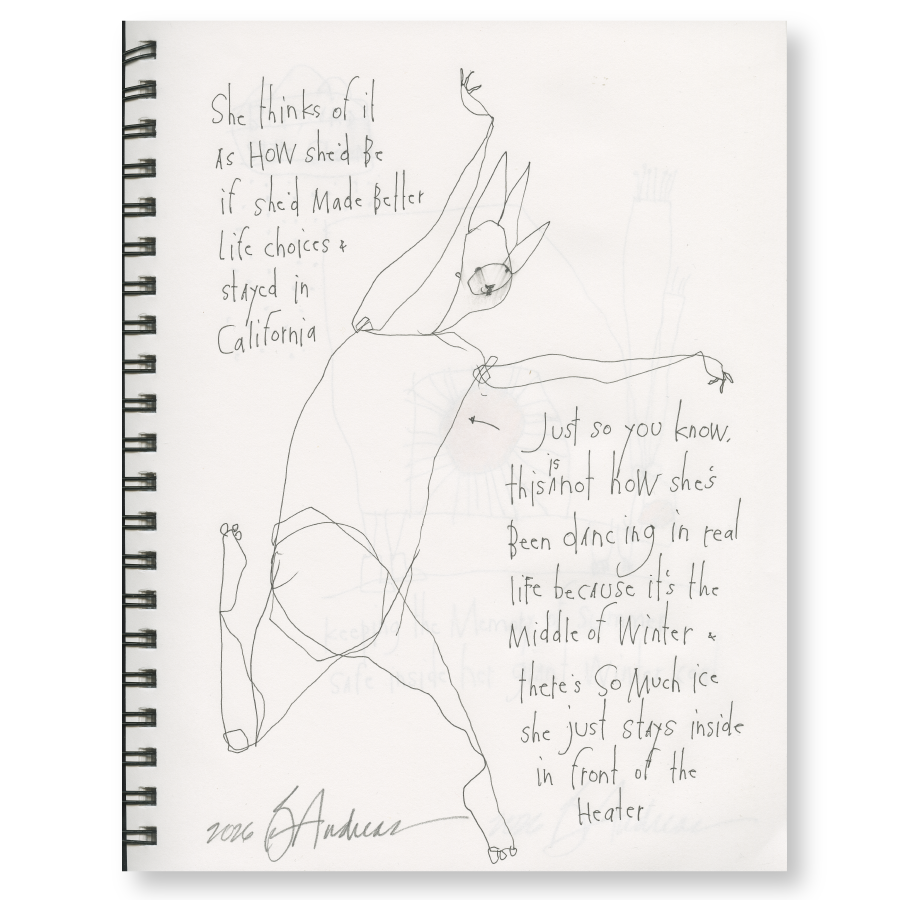 She thinks of it
As HOW she'd Be
if she'd Made Better
Life choices &
stayed in
California
Just so you know,
this is not how she's
Been dancing in real
life because it's the
Middle of Winter &
there's So Much ice
she just stays inside
in front of the
Heater
keeping the Memory of Summer
safe inside her giant
2026 Andreas